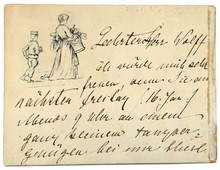 Geehrter Herr Wolff
Ich würde mich sehr
freuen, wenn Sie am
nächsten Freitag (16. Jan.)
Abends 9 Uhr an einem
ganz kleinen Tanzver-
gnügen bei mir